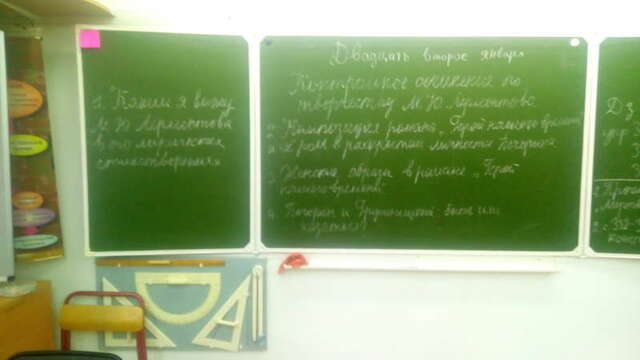 Двадцать второе января
Контрольное сочинение по
творчеству М. Ю. Лермонтова
1. "Каким я вижу
М. Ю. Лермонтова
в его лирических
стихотворениях
2. "Композиция романа „Герой нашего времени"
и её роль в раскрытии личности Печорина
3. Женские образы в романе „Герой
нашего времени"
4. Печорин и Грушницкий: быть или
казаться?
Дз
упр